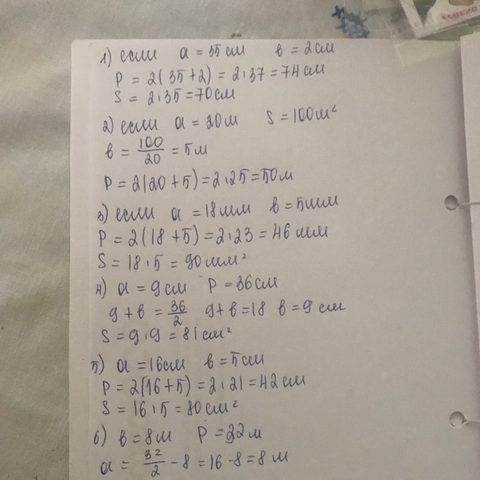 1) если a = 35 см в = 2 см
P = 2(35+2) = 2·37 = 74 см
S = 2·35 = 70 см
2) если a = 20 м S = 100 м²
в = 100/20 = 5 м
P = 2(20+5) = 2·25 = 50 м
3) если a = 18 мм в = 5 мм
P = 2(18+5) = 2·23 = 46 мм
S = 18·5 = 90 мм²
4) a = 9 см P = 36 см
9+в = 36/2 9+в = 18 в = 9 см
S = 9·9 = 81 см²
5) a = 16 см в = 5 см
P = 2(16+5) = 2·21 = 42 см
S = 16·5 = 80 см²
6) в = 8 м P = 32 м
a = 32/2 - 8 = 16 - 8 = 8 м